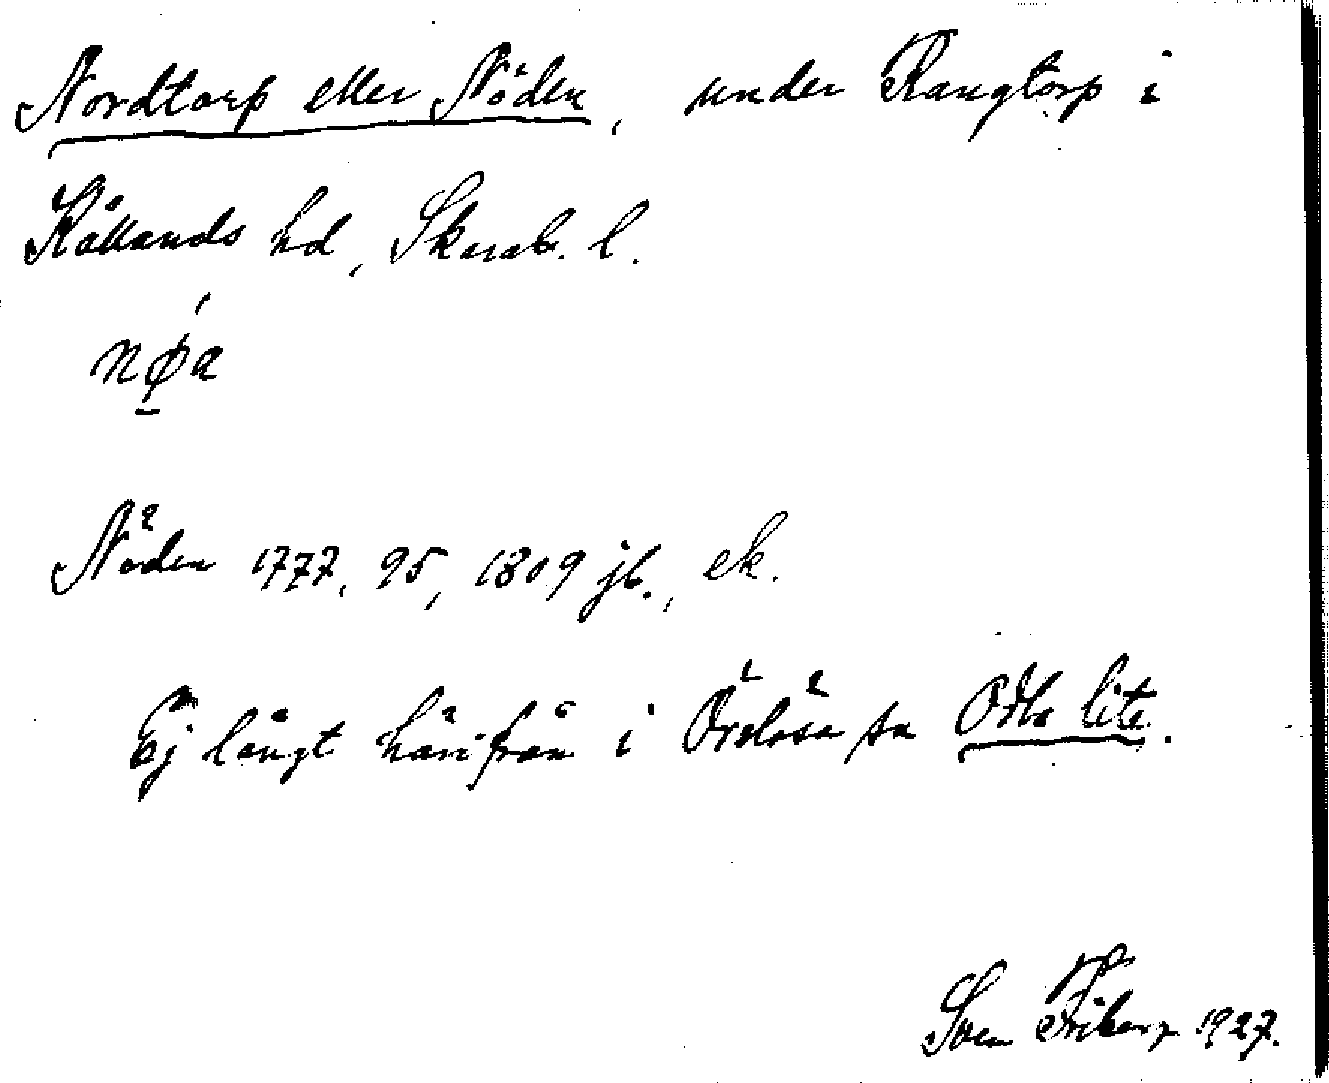 Nordtorp eller Nöden, under Rangtorp i
Kållands hd, Skarab. l.
nǿ̱a
Nöden 1777, 95, 1809 jb., ek.
Ej långt härifrån i Örslösa sn Odla lite.
Sven Friberg 1927.